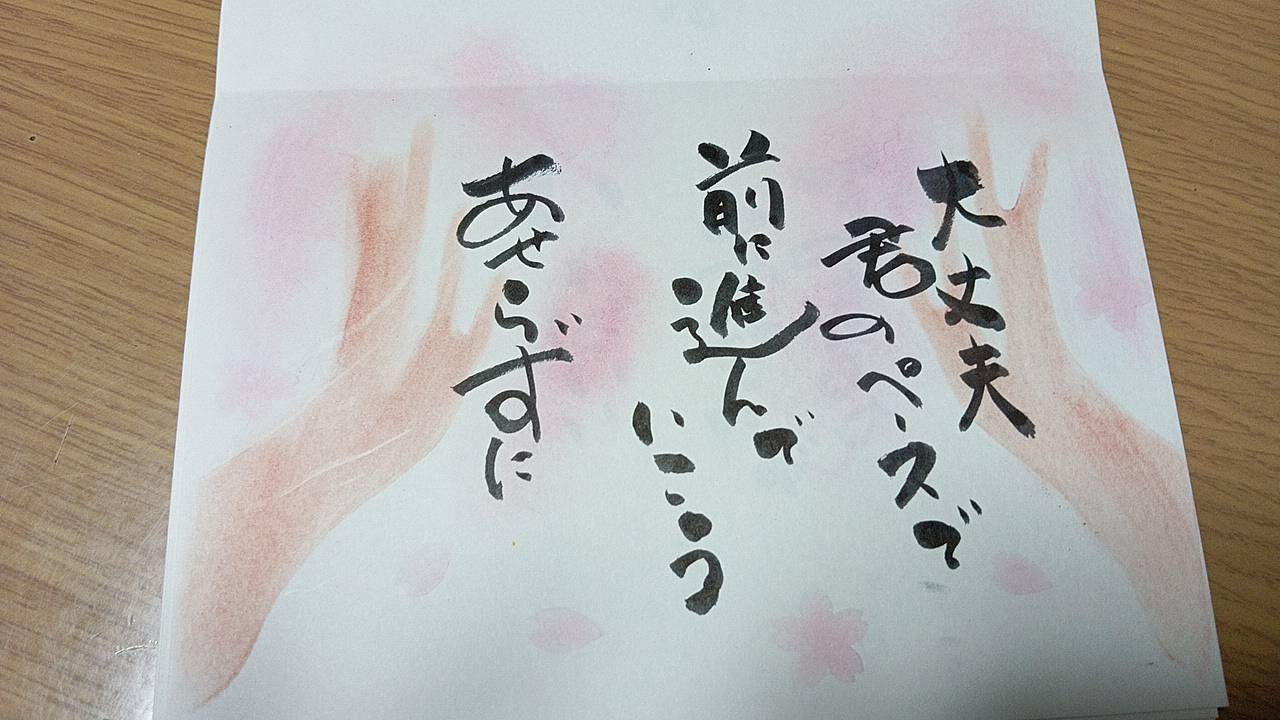 大丈夫
君のペースで
前に進んで
いこう
あせらずに